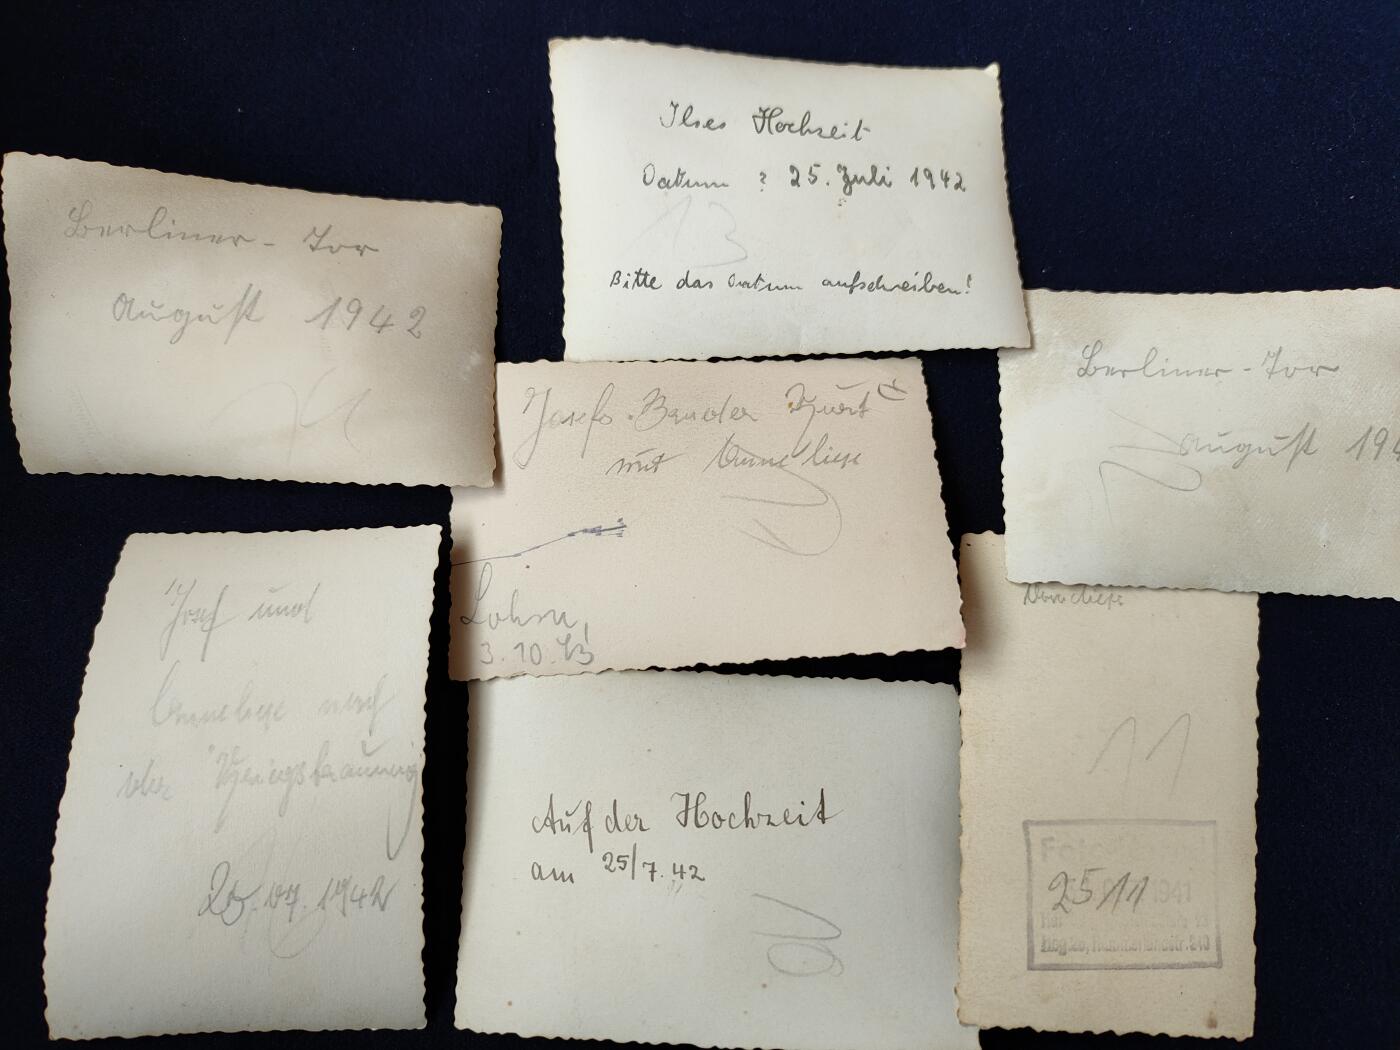 Ilses Hochzeit
Datum ? 25. Juli 1942
13
Bitte das Datum aufschreiben!
Berliner-Tor
August 1942
Berliner-Tor
August 194
Josefs Bruder Kurt
mit Anneliese
Lohne,
3.10.43
Josef und
Anneliese nach
der Kriegstrauung
25.07.1942
Auf der Hochzeit
am 25/7.42
11
Foto
25 11 1941